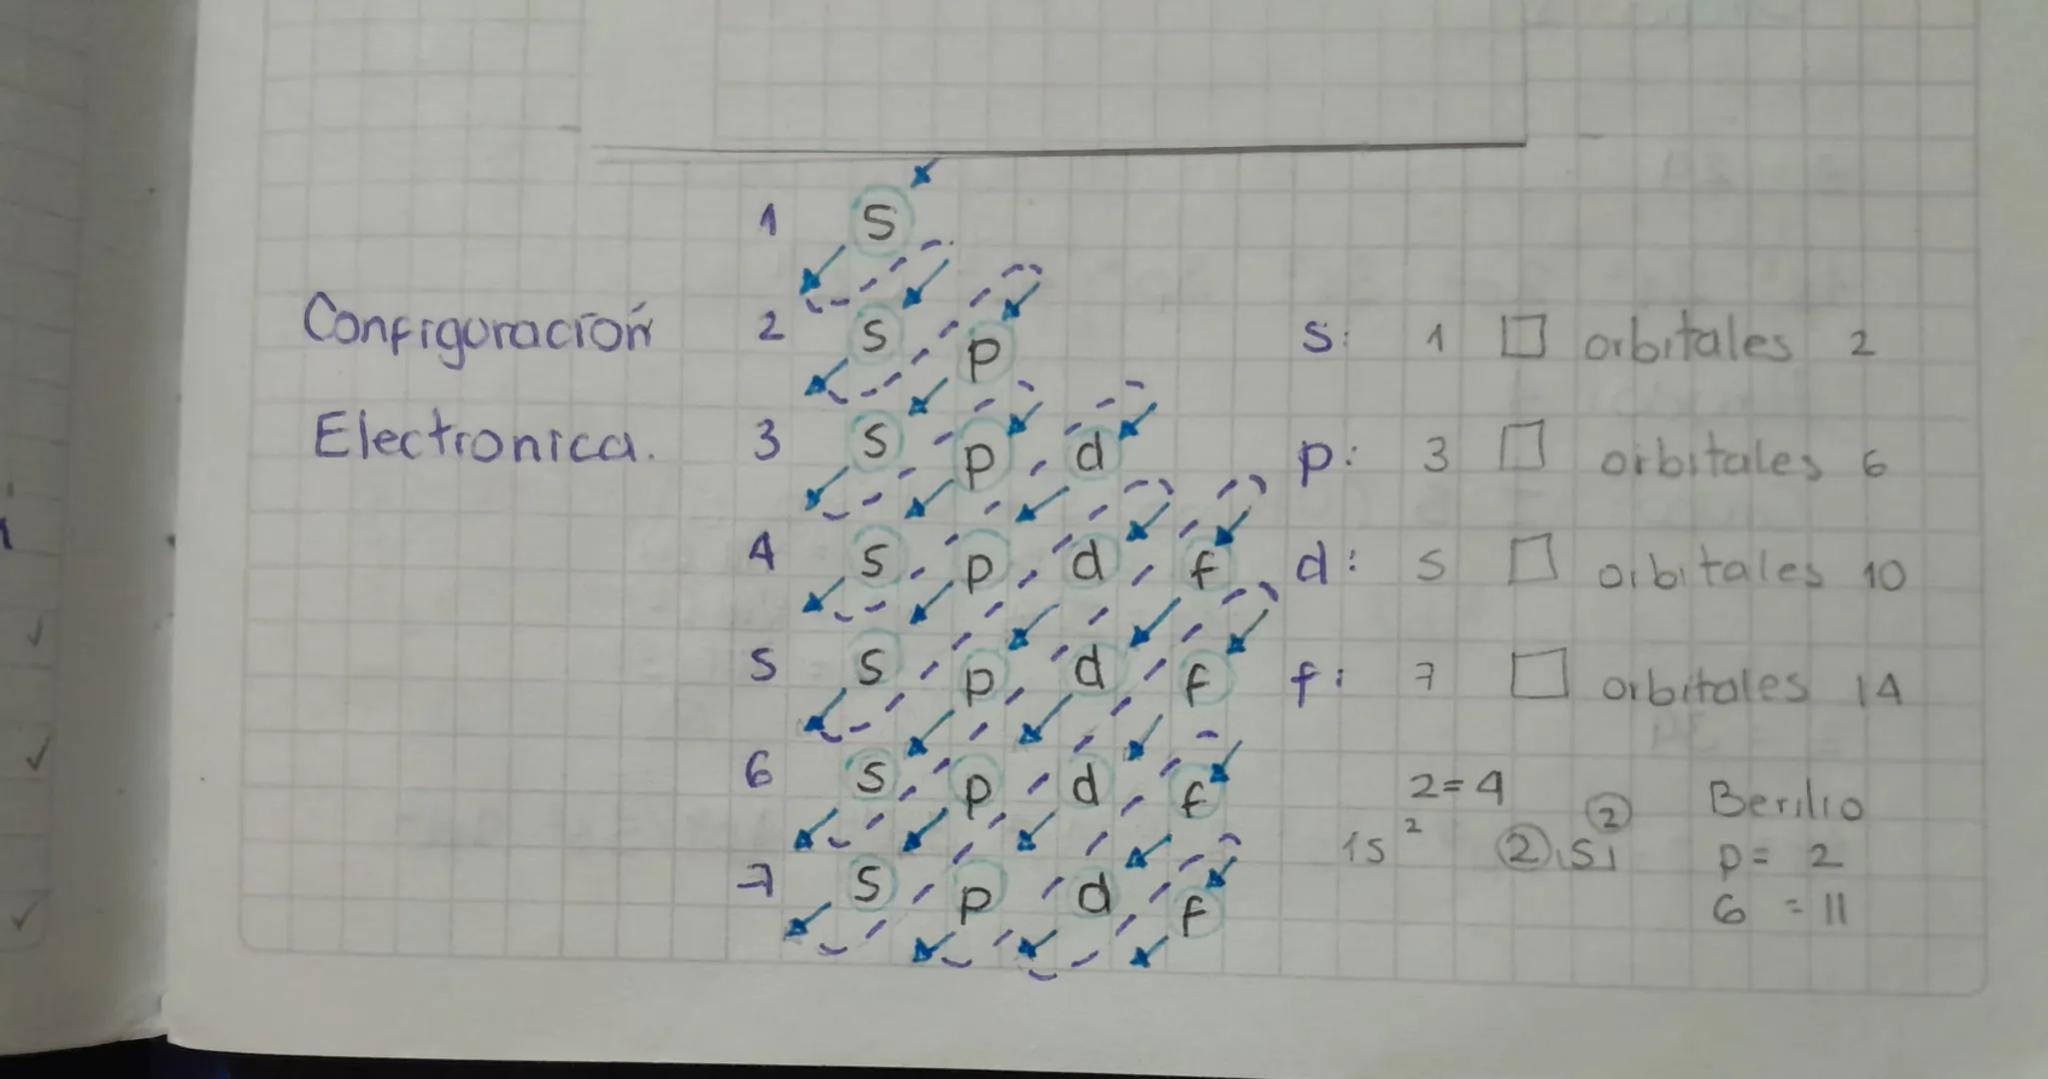 1 s
Configuración 2 s p
Electronica. 3 s p d
4 s p d f
5 s p d f
6 s p d f
7 s p d f
s: 1 □ orbitales 2
p: 3 □ orbitales 6
d: 5 □ orbitales 10
f: 7 □ orbitales 14
2=4
1s² ②s②
Berilio
p= 2
G = II